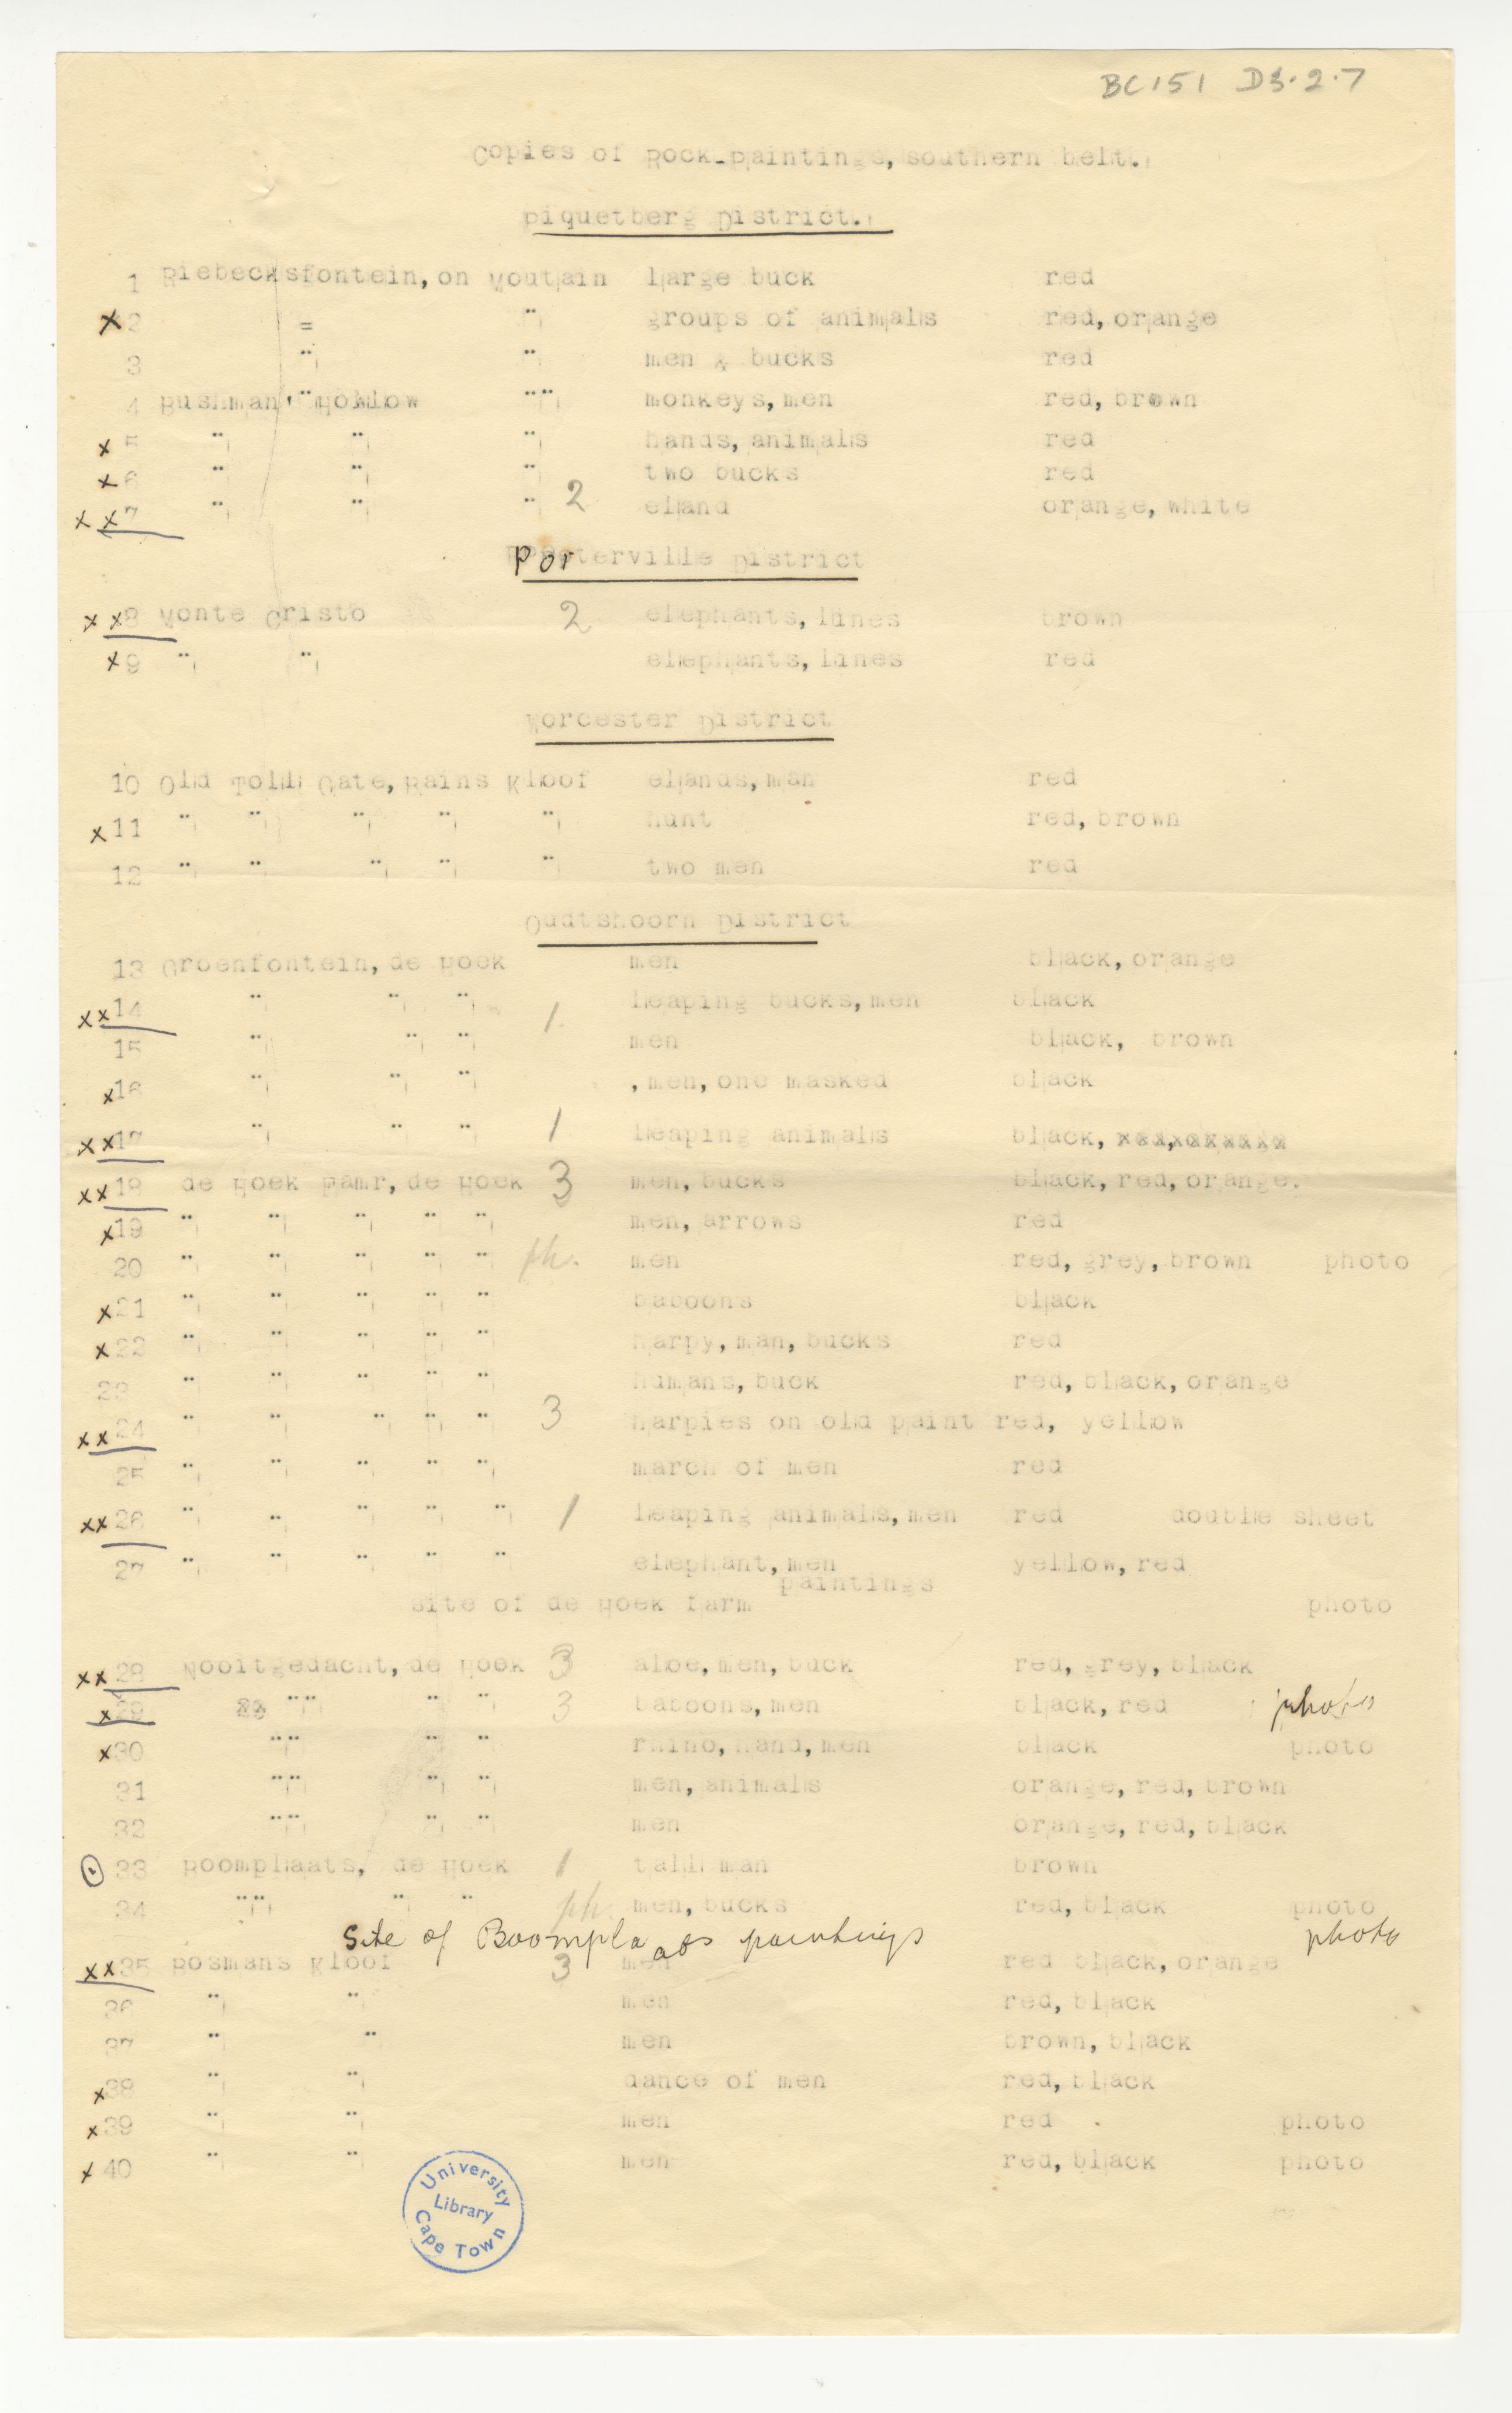 BC151 D3.2.7
Copies of Rock-Paintings, southern belt.
Piquetberg District.
1 Riebecksfontein, on Moutain large buck red
x2 = " groups of animals red, orange
3 " " men & bucks red
4 Bushman' " Hollow "" monkeys, men red, brown
x5 " " " hands, animals red
x6 " " " two bucks red
x x7 " " " 2 eland orange, white
Porterville District
x x8 Monte Cristo 2 elephants, lines brown
x9 " " elephants, lines red
Worcester District
10 Old Toll Gate, Bains Kloof elands, man red
x11 " " " " " hunt red, brown
12 " " " " " two men red
Oudtshoorn District
13 Groenfontein, de Hoek men black, orange
xx14 " " " 1 leaping bucks, men black
15 " " " men black, brown
x16 " " " , men, one masked black
xx17 " " " 1 leaping animals black,
xx18 de Hoek Famr, de Hoek 3 men, bucks black, red, orange.
x19 " " " " " men, arrows red
20 " " " " " ph. men red, grey, brown photo
x21 " " " " " baboons black
x22 " " " " " harpy, man, bucks red
23 " " " " " humans, buck red, black, orange
xx24 " " " " " 3 harpies on old paint red, yellow
25 " " " " " march of men red
xx26 " " " " " 1 leaping animals, men red double sheet
27 " " " " " elephant, men yellow, red
paintings
Site of de Hoek farm photo
xx28 Nooitgedacht, de Hoek 3 aloe, men, buck red, grey, black
x29 "" " " 3 baboons, men black, red photo
x30 "" " " rhino, hand, men black photo
31 "" " " men, animals orange, red, brown
32 "" " " men orange, red, black
33 Boomplaats, de Hoek 1 tall man brown
34 "" " " ph. men, bucks red, black photo
Site of Boomplaats paintings photo
xx35 Bosmans Kloof 3 men red black, orange
36 " " men red, black
37 " " men brown, black
x38 " " dance of men red, black
x39 " " men red . photo
x40 " " men red, black photo
University
Library
Cape Town